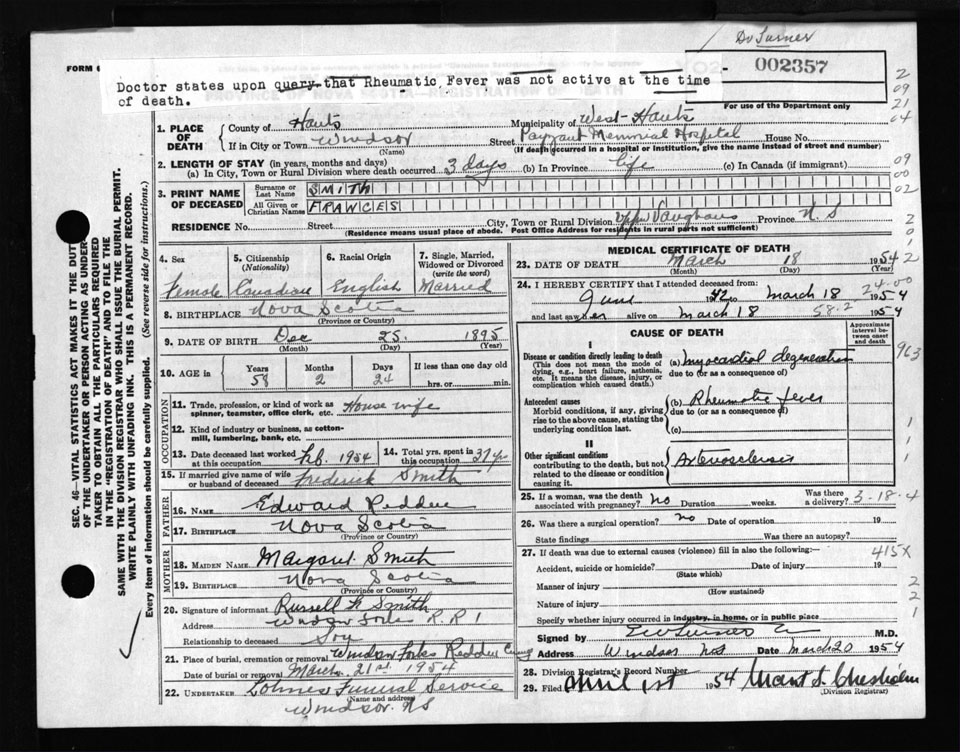 Dr Turner
FORM 6
002357
Doctor states upon query that Rheumatic Fever was not active at the time
of death.
For use of the Department only
1. PLACE OF DEATH
County of Hants
Municipality of West-Hants
If in City or Town Windsor
(Name)
Street Payzant Memorial Hospital House No.
(If death occurred in a hospital or institution, give the name instead of street and number)
2. LENGTH OF STAY (in years, months and days)
(a) In City, Town or Rural Division where death occurred 3 days (b) In Province life (c) In Canada (if immigrant)
3. PRINT NAME OF DECEASED
Surname or Last Name SMITH
All Given or Christian Names FRANCES
RESIDENCE No. Street City, Town or Rural Division Upper Vaughans Province N.S
(Residence means usual place of abode. Post Office Address for residents in rural parts not sufficient)
4. Sex
Female
5. Citizenship
(Nationality)
Canadian
6. Racial Origin
English
7. Single, Married, Widowed or Divorced
(write the word)
Married
8. BIRTHPLACE Nova Scotia
(Province or Country)
9. DATE OF BIRTH Dec 25 1895
(Month) (Day) (Year)
10. AGE in Years 58 Months 2 Days 24 If less than one day
hrs. or min.
OCCUPATION
11. Trade, profession, or kind of work as Housewife
spinner, teamster, office clerk, etc.
12. Kind of industry or business, as cotton-
mill, lumbering, bank, etc.
13. Date deceased last worked at this occupation Feb. 1954
14. Total yrs. spent in this occupation 37 yrs
15. If married give name of wife or husband of deceased Frederick Smith
FATHER
16. Name Edward Redden
17. Birthplace Nova Scotia
(Province or Country)
MOTHER
18. MAIDEN NAME Margaret Smith
19. BIRTHPLACE Nova Scotia
(Province or Country)
20. Signature of informant Russell Smith
Address Windsor Forks R.R 1
Relationship to deceased Son
21. Place of burial, cremation or removal Windsor Forks Redden Cemy
Date of burial or removal March 21st 1954
22. UNDERTAKER Lohnes Funeral Service
(Name and address)
Windsor. NS
MEDICAL CERTIFICATE OF DEATH
23. DATE OF DEATH March 18 1954
(Month) (Day) (Year)
24. I HEREBY CERTIFY that I attended deceased from:
June 1942 to March 18 1954
and last saw her alive on March 18 1954
CAUSE OF DEATH
Approximate interval between onset and death
I
Disease or condition directly leading to death
(This does not mean the mode of dying, e.g., heart failure, asthenia, etc. It means the disease, injury, or complication which caused death.)
(a) Myocardial degeneration
due to (or as a consequence of)
Antecedent causes
Morbid conditions, if any, giving rise to the above cause, stating the underlying condition last.
(b) Rheumatic fever
due to (or as a consequence of)
(c)
II
Other significant conditions
contributing to the death, but not related to the disease or condition causing it.
Arteriosclerosis
25. If a woman, was the death associated with pregnancy? No Duration weeks. Was there a delivery?
3-18-4
26. Was there a surgical operation? no Date of operation 19
State findings Was there an autopsy?
27. If death was due to external causes (violence) fill in also the following:-
Accident, suicide or homicide? Date of injury 19
(State which)
Manner of injury
(How sustained)
Nature of injury
Specify whether injury occurred in industry, in home, or in public place
Signed by E W Turner M.D.
Address Windsor N.S Date March 20 1954
28. Division Registrar's Record Number
29. Filed April 1st 1954
(Division Registrar)
24-00
58-2
963
415X
SEC. 46—VITAL STATISTICS ACT MAKES IT THE DUTY
OF THE UNDERTAKER OR PERSON ACTING AS UNDER-
TAKER TO OBTAIN ALL THE PARTICULARS REQUIRED
IN THE "REGISTRATION OF DEATH" AND TO FILE THE
SAME WITH THE DIVISION REGISTRAR WHO SHALL ISSUE THE BURIAL PERMIT.
WRITE PLAINLY WITH UNFADING INK. THIS IS A PERMANENT RECORD.
Every item of information should be carefully supplied. (See reverse side for instructions.)